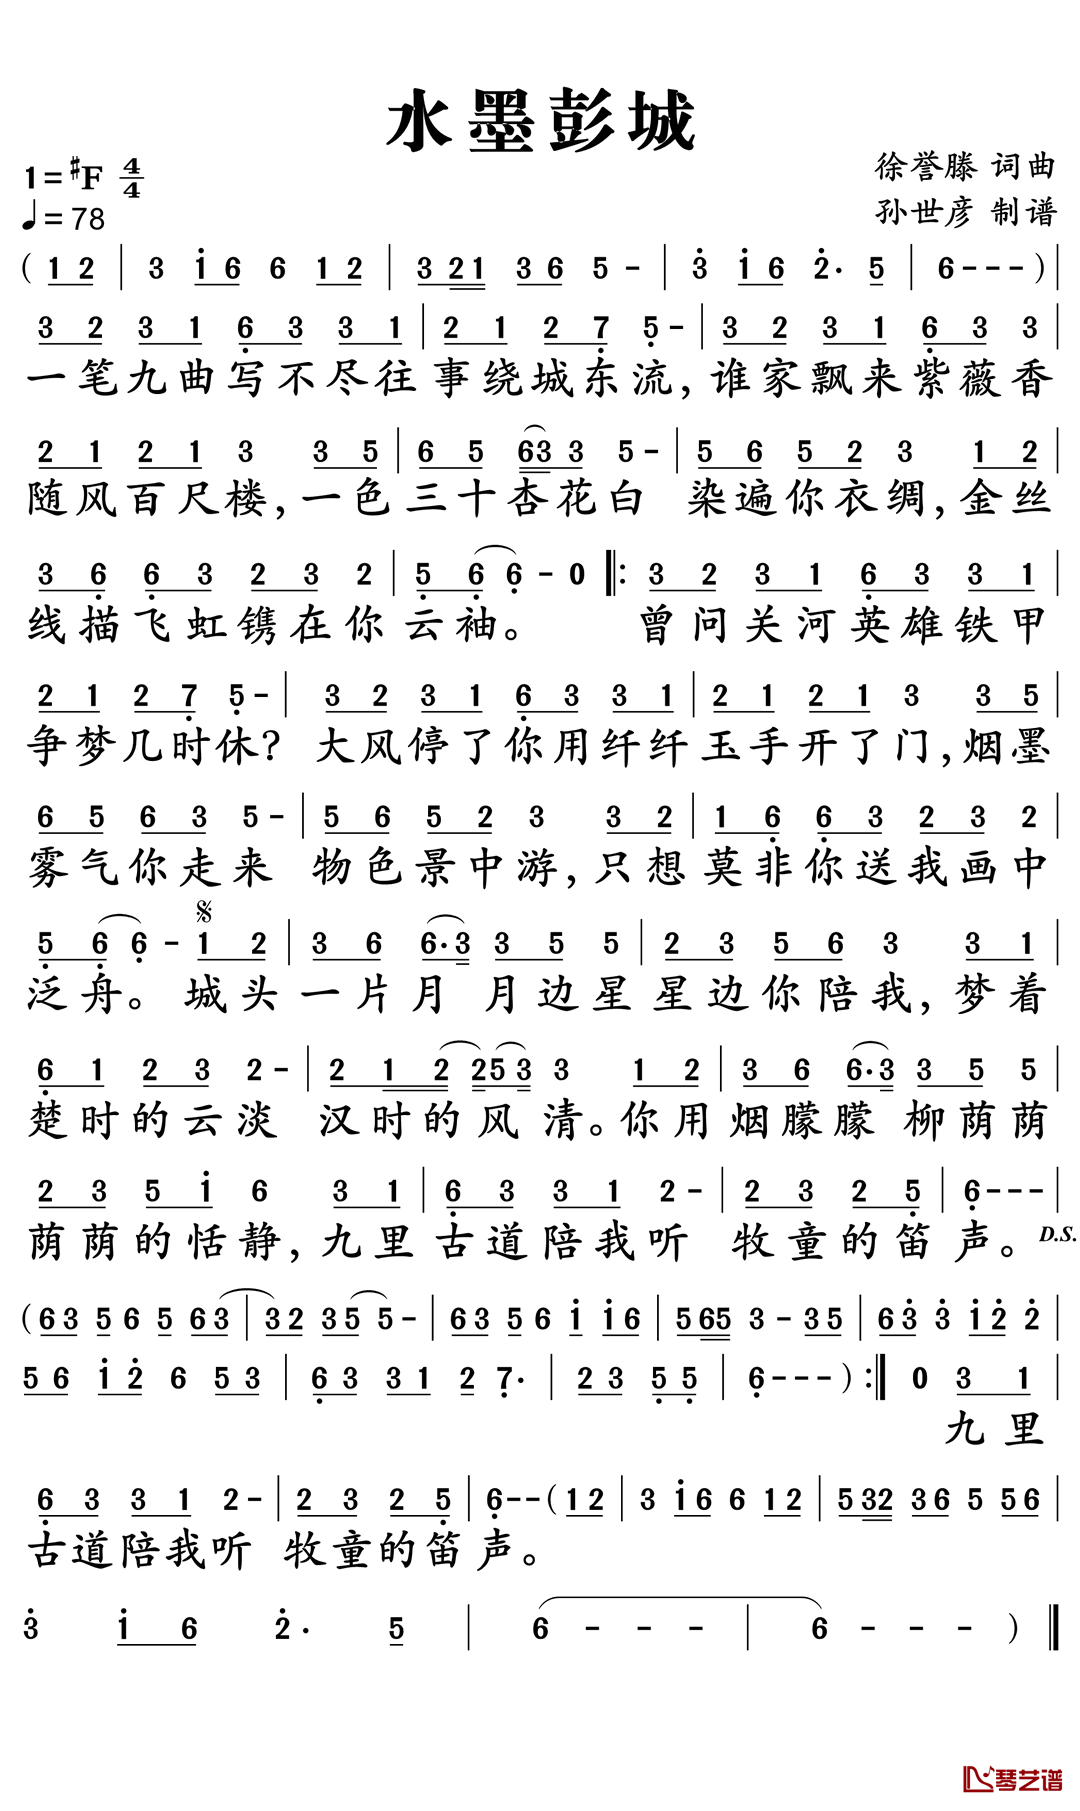 水墨彭城
1=♯F 4/4
徐誉滕 词曲
♩=78
孙世彦 制谱
( 1 2 | 3 i 6 6 1 2 | 3 2 1 3 6 5 - | 3 i 6 2· 5 | 6 - - - ) |
3 2 3 1 6 3 3 1 | 2 1 2 7 5 - | 3 2 3 1 6 3 3 |
一笔九曲写不尽往事绕城东流,谁家飘来紫薇香
2 1 2 1 3 3 5 | 6 5 6 3 3 5 - | 5 6 5 2 3 1 2 |
随风百尺楼,一色三十杏花白 染遍你衣绸,金丝
3 6 6 3 2 3 2 | 5 6 6 - 0 ‖: 3 2 3 1 6 3 3 1 |
线描飞虹镌在你云袖。 曾问关河英雄铁甲
2 1 2 7 5 - | 3 2 3 1 6 3 3 1 | 2 1 2 1 3 3 5 |
争梦几时休? 大风停了你用纤纤玉手开了门,烟墨
6 5 6 3 5 - | 5 6 5 2 3 3 2 | 1 6 6 3 2 3 2 |
雾气你走来 物色景中游,只想莫非你送我画中
5 6 6 - 1 2 | 3 6 6· 3 3 5 5 | 2 3 5 6 3 3 1 |
泛舟。城头一片月 月边星星边你陪我,梦着
6 1 2 3 2 - | 2 1 2 2 5 3 3 1 2 | 3 6 6· 3 3 5 5 |
楚时的云淡 汉时的风清。你用烟朦朦 柳荫荫
2 3 5 i 6 3 1 | 6 3 3 1 2 - | 2 3 2 5 | 6 - - - |
荫荫的恬静,九里古道陪我听 牧童的笛声。 D.S.
( 6 3 5 6 5 6 3 | 3 2 3 5 5 - | 6 3 5 6 i i 6 | 5 6 5 3 - 3 5 | 6 3 3 i 2 2
5 6 i 2 6 5 3 | 6 3 3 1 2 7· | 2 3 5 5 | 6 - - - ) :‖ 0 3 1 |
九里
6 3 3 1 2 - | 2 3 2 5 | 6 - - ( 1 2 | 3 i 6 6 1 2 | 5 3 2 3 6 5 5 6 |
古道陪我听 牧童的笛声。
3 i 6 2· 5 | 6 - - - | 6 - - - ) ‖
琴艺谱